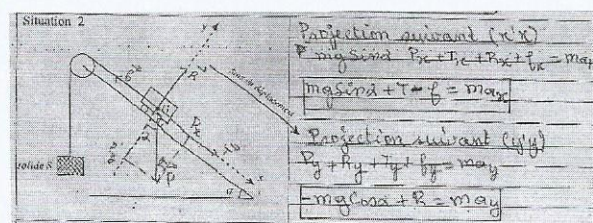 Situation 2
solide S
Sens de déplacement
Projection suivant (x'x)
P mgsinα Px + Tx + Rx + fx = max
mgsinα + T - f = max
Projection suivant (y'y)
Py + Ry + Ty + fy = may
-mgcosα + R = may